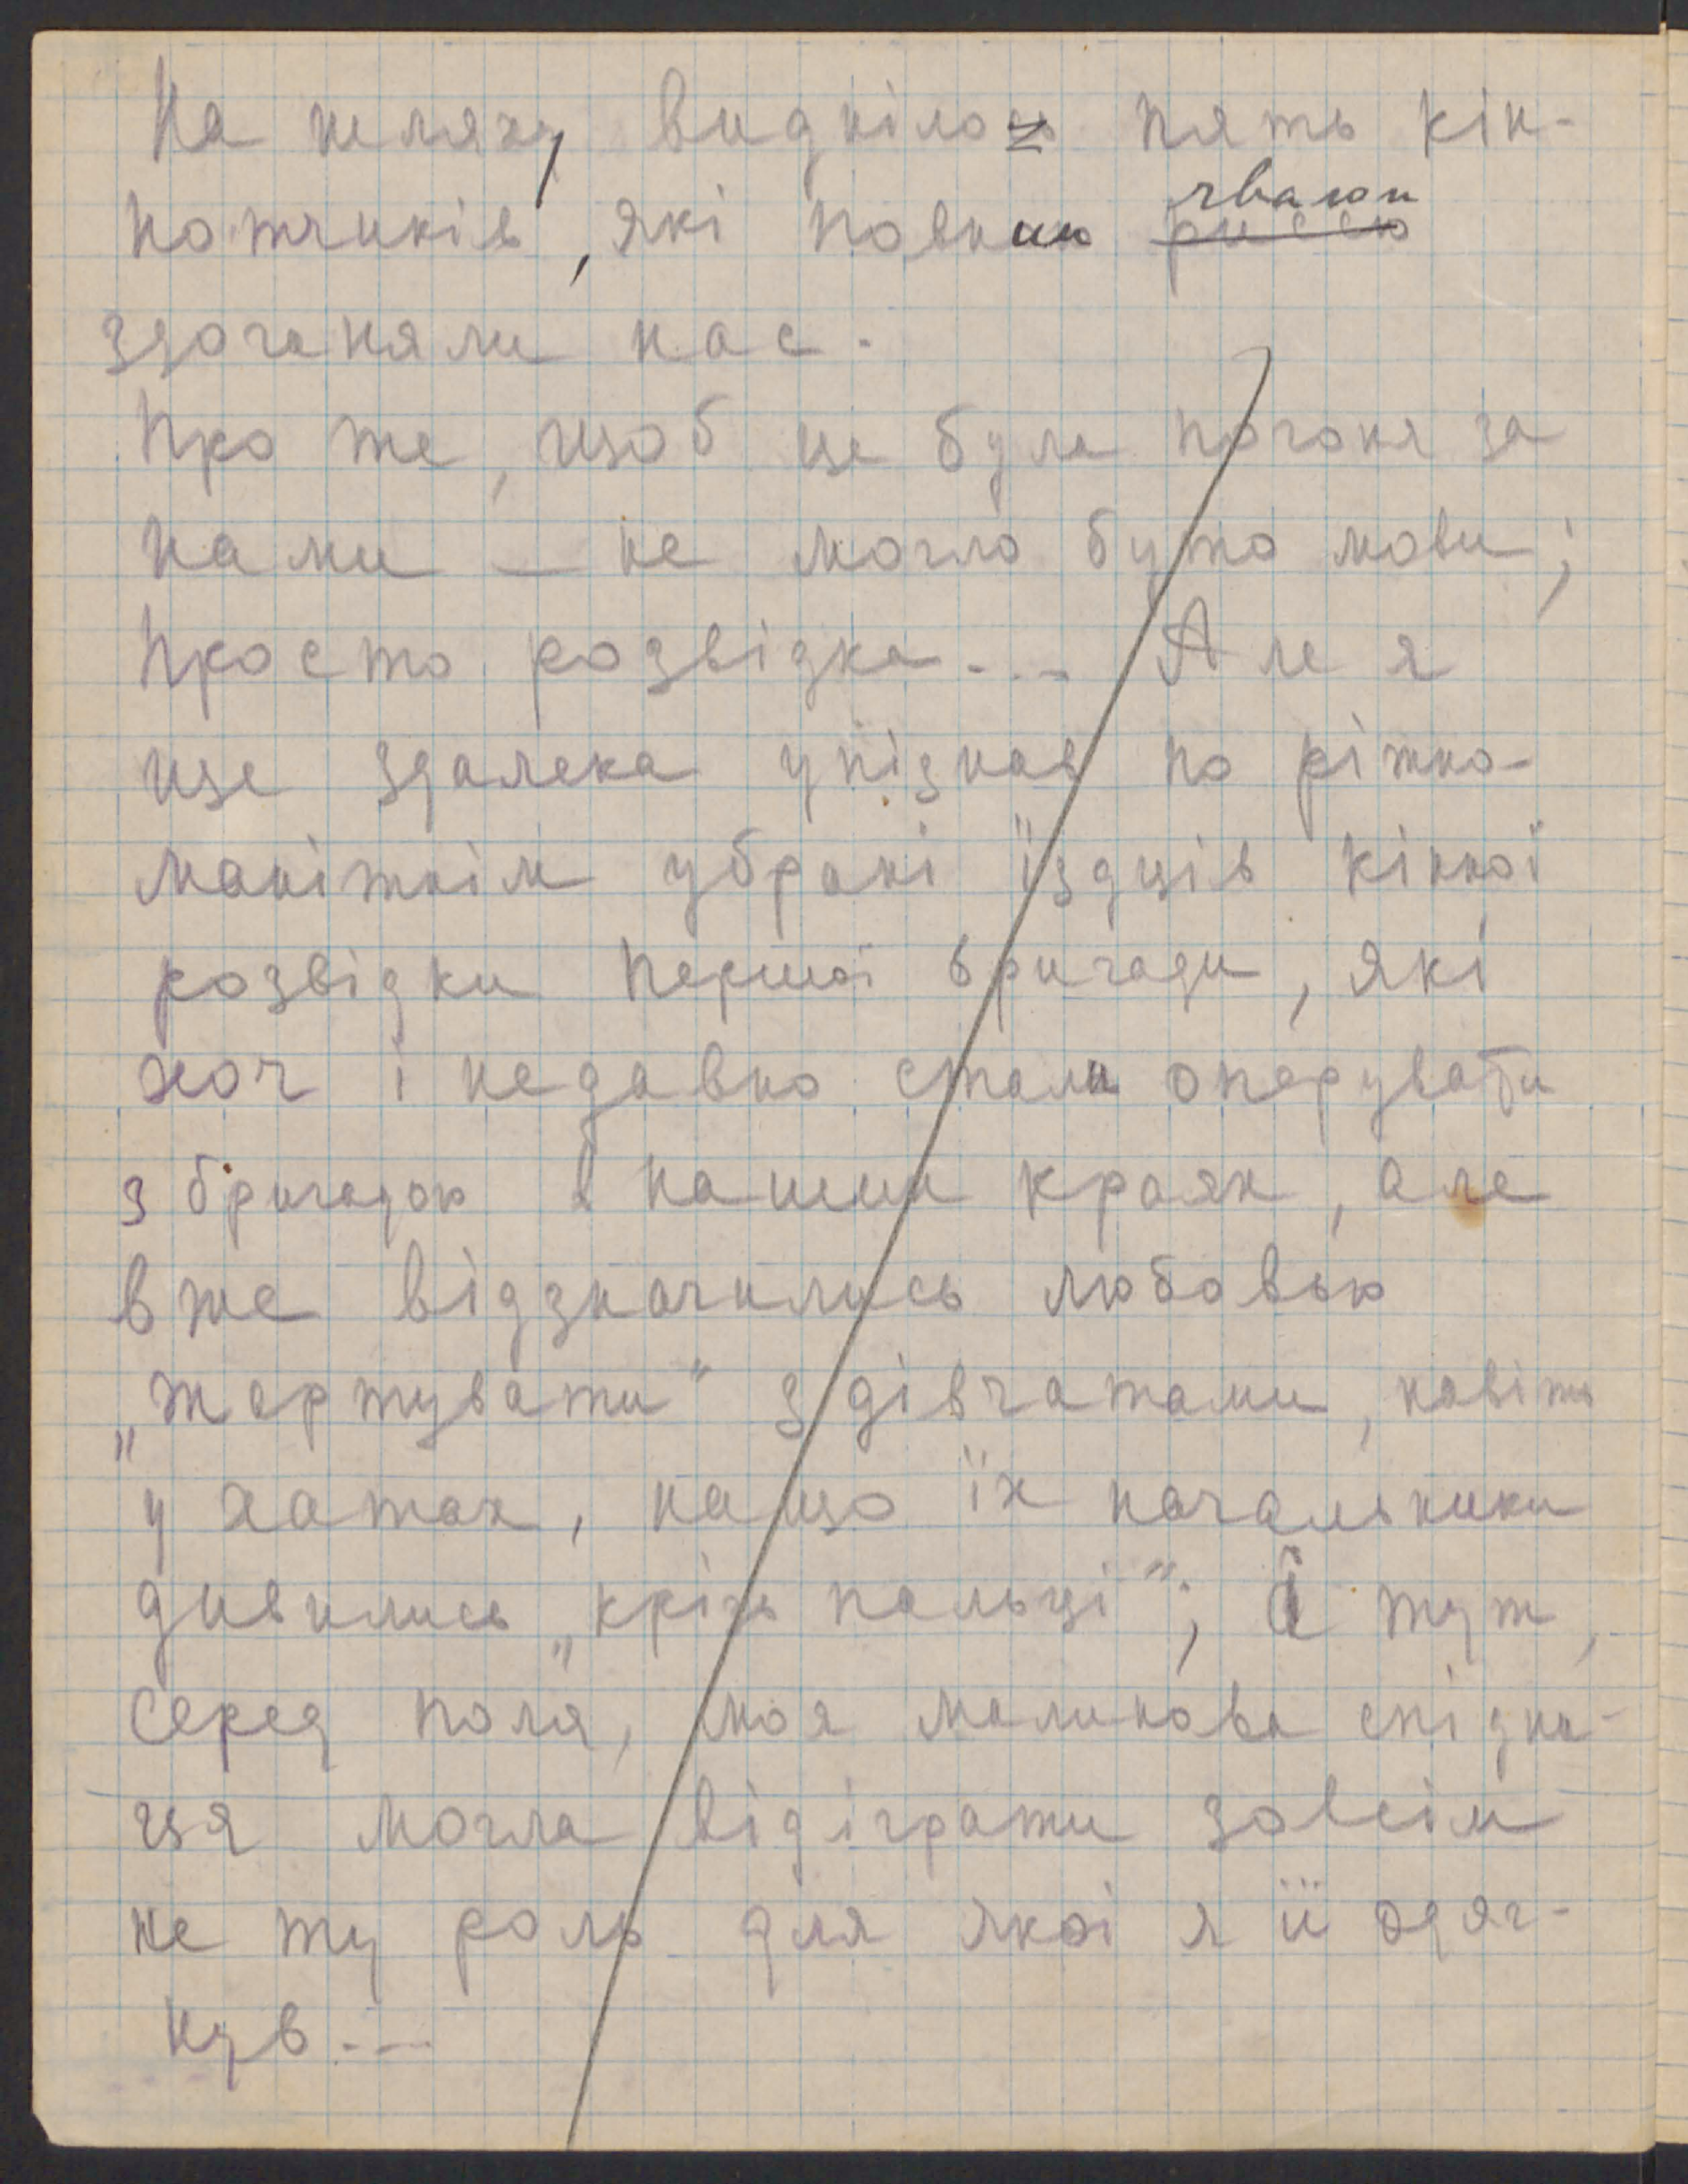 На шляху виднілось пять кін-
нотчиків, які повним риссю чвалом
здоганяли нас.
Про те, щоб це була погоня за
нами — не могло бути мови;
Просто розвідка... Але я
ще здалека упізнав по ріжно-
манітнім убрані їздців кінної
розвідки першої бригади, які
хоч і недавно стали оперувати
з бригадою в нашим краян, але
вже відзначились любовью
„жартувати" з дівчатами, навіть
у хатах, на що їх начальники
дивились „крізь пальці"; і тут,
серед поля, моя малинова спідни-
ця могла відіграти зовсім
не ту роль для якої я її одяг-
нув...